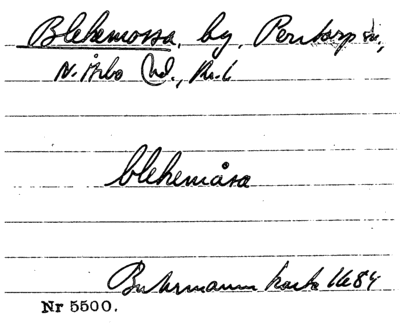 Blekemossa, by, Perstorp sn,
N. Åsbo hd., Kr. l
blekemåsa
Buhrmanns karta 1684
Nr 5500.